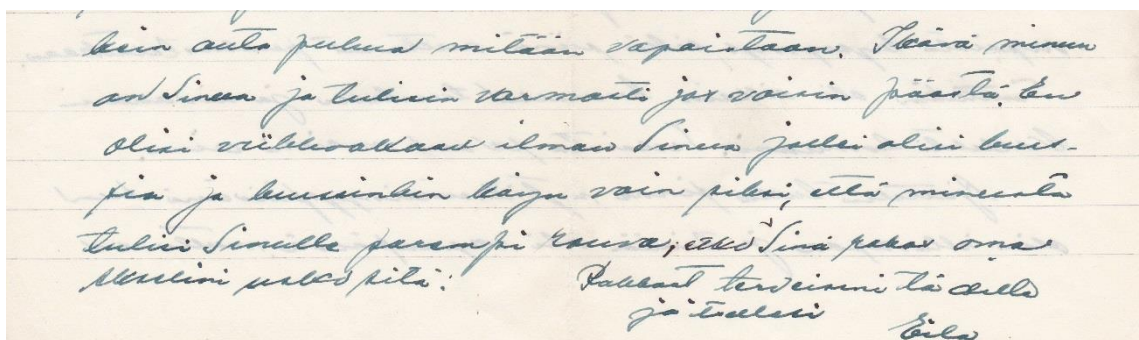 kein auta puhua mitään vapaistaan. Ikävä minun
on Sinua ja tulisin varmasti jos voisin päästä. En
olisi viikkoakaan ilman Sinua jollei olisi kurs-
sia ja kurssinkin käyn vain siksi, että minusta
tulisi Sinulle parempi rouva, eikö Sinä rakas oma
usko sitä!
Rakkaat terveiseni
ja
Eila